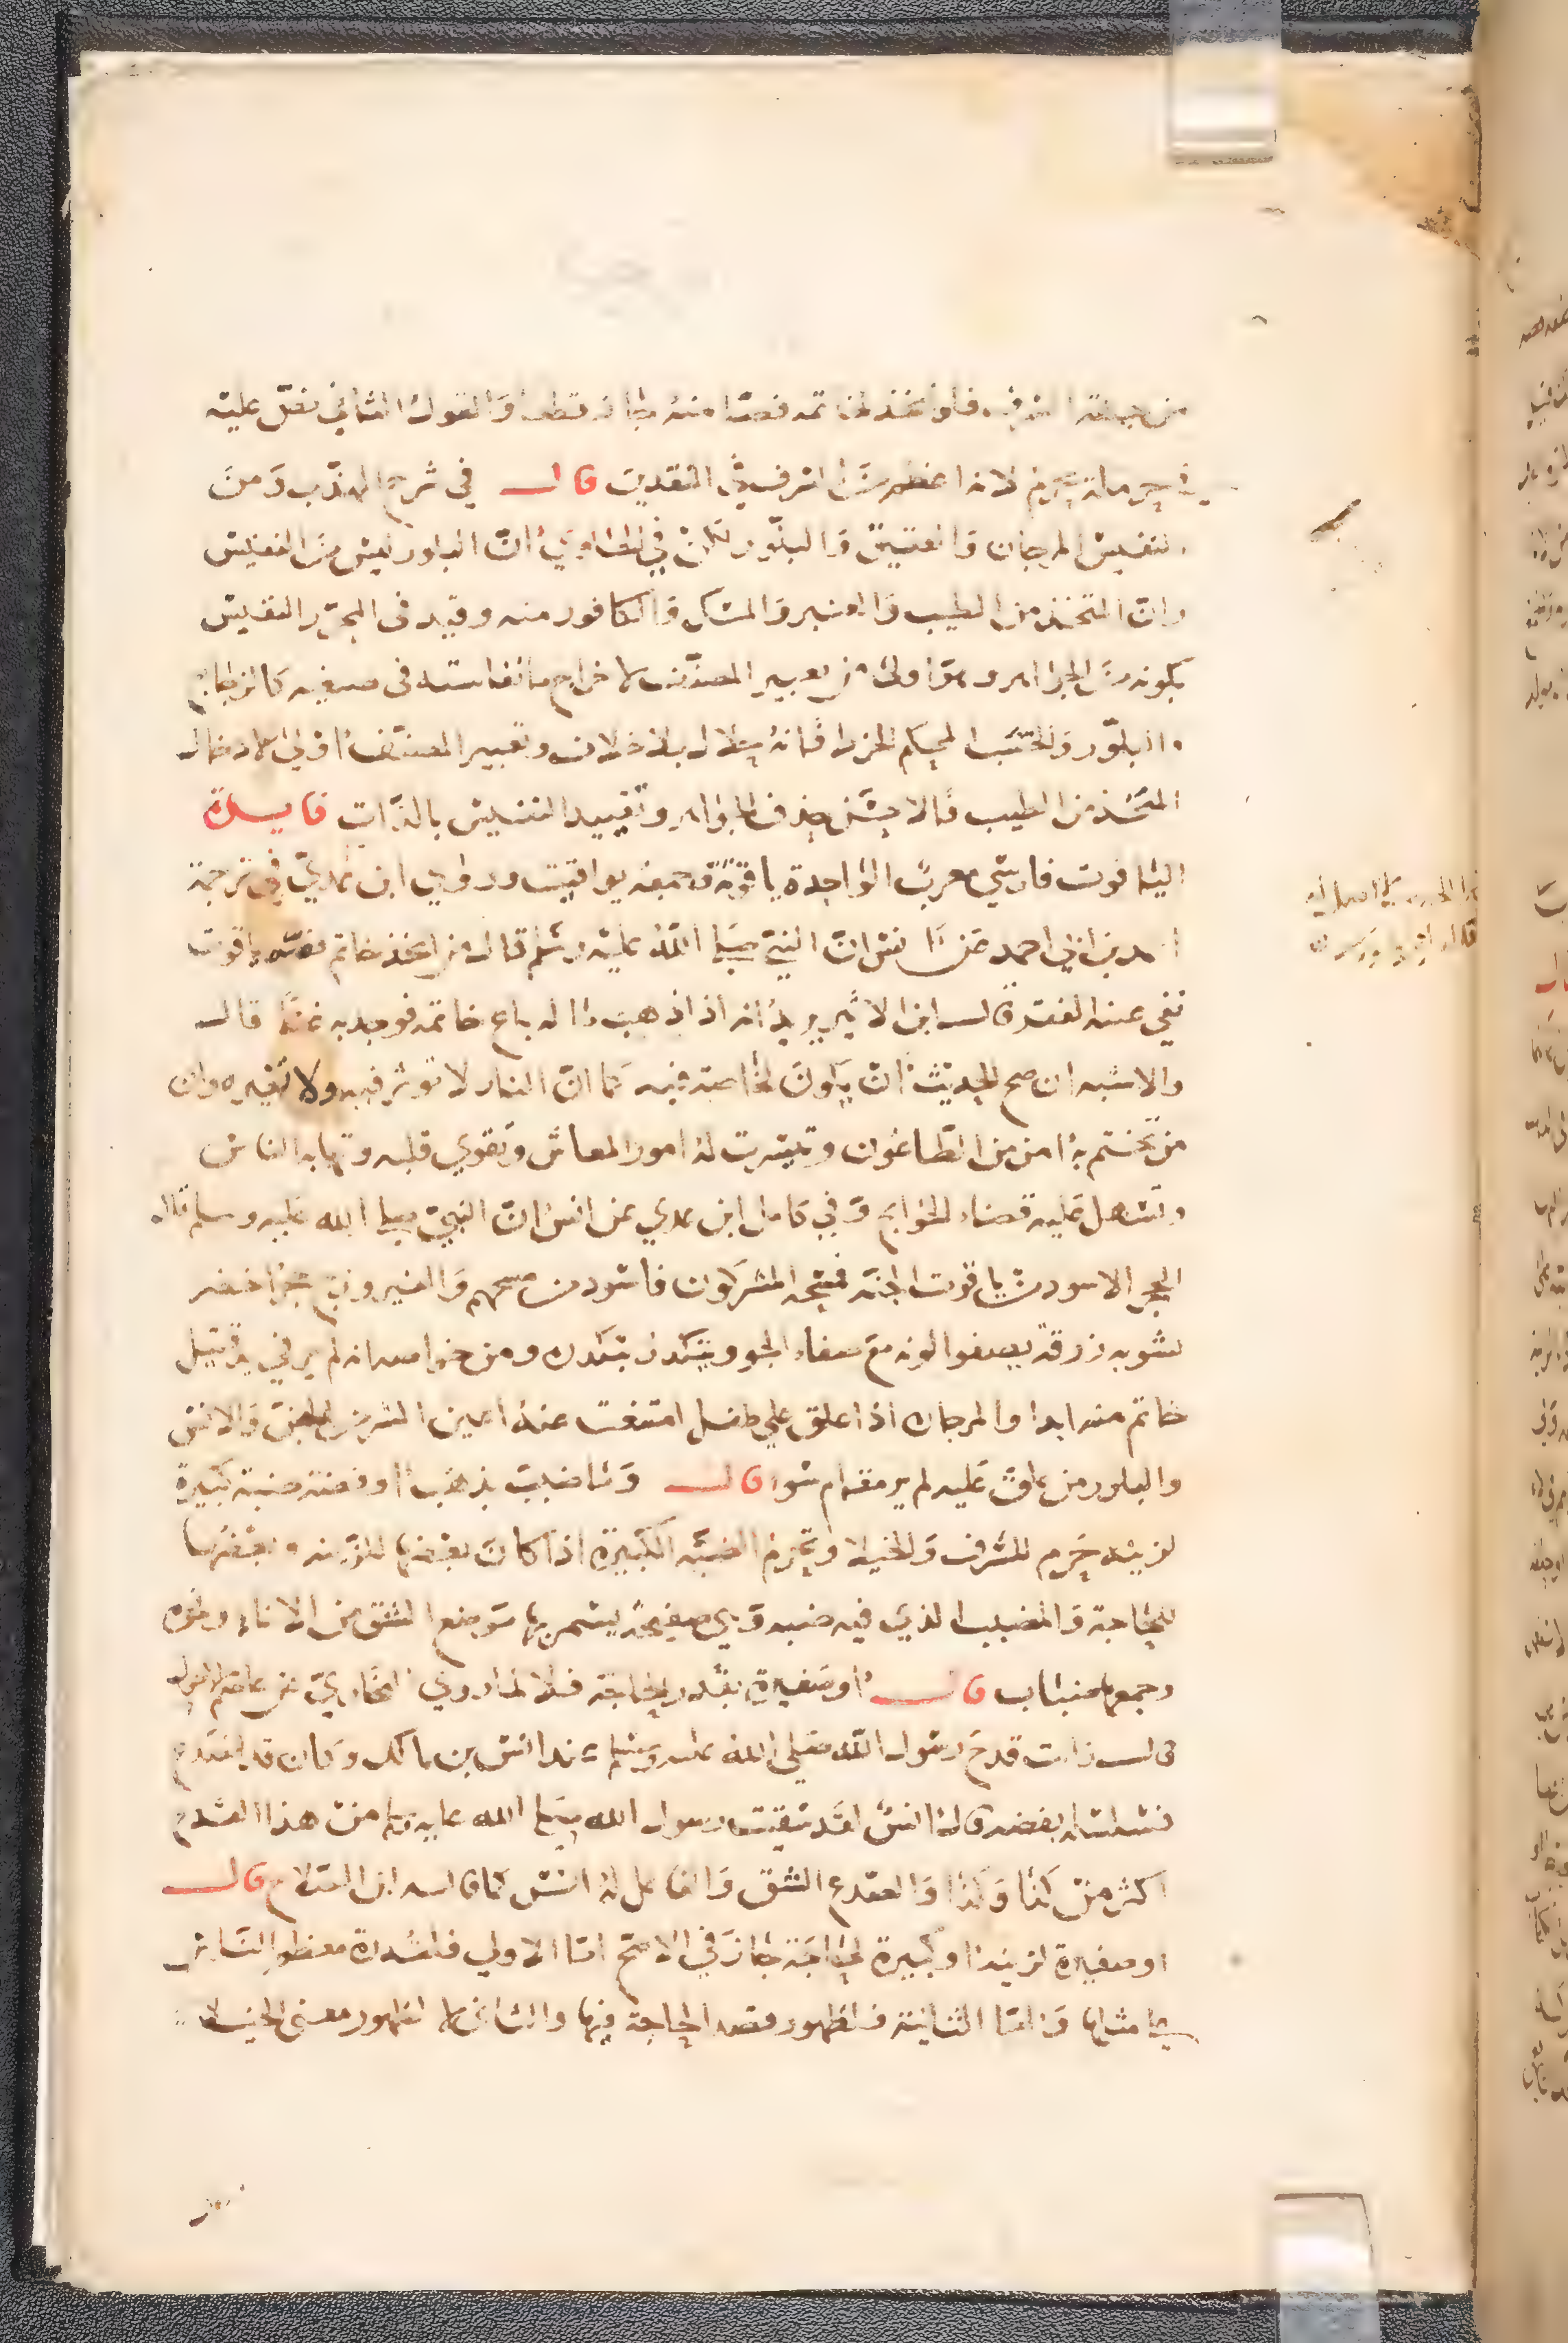 من جهة الشرف فلو اتخذ لخاتمه فصا منه جاز قطعا والقول الثاني نص عليه
في حرملة يحرم لانه اعظم في السرف من النقدين قال في شرح المهذب ومن
النفيس المرجان والعقيق والبلور لكن في الحاوي ان البلور ليس من النفيس
وان المتخذ من الطيب والعنبر والمسك والكافور منه وقيد في المحرر النفيس
بكونه من الجواهر وهو اولى من تعبير المصنف لاخراج ما نفاسته في صنعته كالزجاج
والبلور والخشب المحكم الخرط فانه حلال بلا خلاف وتعبير المصنف اولى لادخال
المتخذ من الطيب فالاحسن حذف الجواهر وتقييد النفيس بالذات فايدة
الياقوت فارسي معرب الواحدة ياقوتة وجمعه يواقيت وروى ابن عدي في ترجمة
احمد بن ابي احمد عن انس ان النبي صلى الله عليه وسلم قال من اتخذ خاتم فصه ياقوت
نفي عنه الفقر قال ابن الاثير يريد انه اذا ذهب ماله باع خاتمه فوجد به غنا قال
والاشبه ان صح الحديث ان يكون لخاصة فيه كما ان النار لا توثر فيه ولا تغيره وان
من تختم به امن من الطاعون وتيسرت له امور المعاش ويقوي قلبه وتهابه الناس
ويسهل عليه قضاء الحوايج وفي كامل ابن عدي عن انس ان النبي صلى الله عليه وسلم قال
الحجر الاسود من ياقوت الجنة فمسحه المشركون فاسود من مسحهم والفيروزج حجر اخضر
تشوبه زرقة يصفوا لونه مع صفاء الجو ويتكدر بتكدره ومن خواصه انه لم ير في يد قتيل
خاتم منه ابدا والمرجان اذا علق على طفل امتنعت عنه اعين السوء من الجن والانس
والبلور من علق عليه لم ير منام سوء قال وما ضبب بذهب او فضة ضبة كبيرة
لزينة حرم للسرف والخيلا وتحرم الضبة الكبيرة اذا كان بعضها للزينة وبعضها
للحاجة والمضبب الذي فيه ضبة وهي صفيحة يسمر بها موضع الشق من الاناء ونحوه
وجمعها ضباب قال او صغيرة بقدر الحاجة فلا لما روى البخاري عن عاصم الاحول
قال رايت قدح رسول الله صلى الله عليه وسلم عند انس بن مالك وكان قد انصدع
فسلسله بفضة قال انس لقد سقيت رسول الله صلى الله عليه وسلم من هذا القدح
اكثر من كذا وكذا والصدع الشق والفاعل له انس كما قاله ابن الصلاح قال
او صغيرة لزينة او كبيرة لحاجة جاز في الاصح اما الاولى فلقدرة معظم الناس
على مثلها واما الثانية فلظهور قصد الحاجة فيها والثاني لا لظهور معنى الخيلا